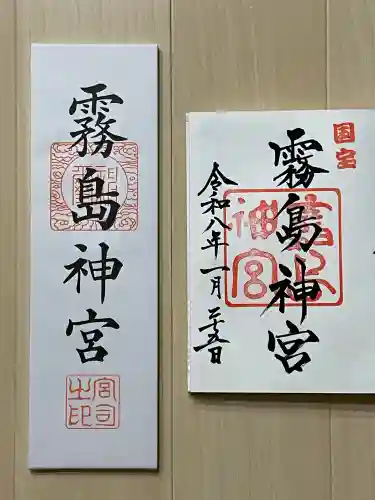 霧島神宮
宮司之印
国宝
霧島神宮
神宮
令和八年一月二十五日